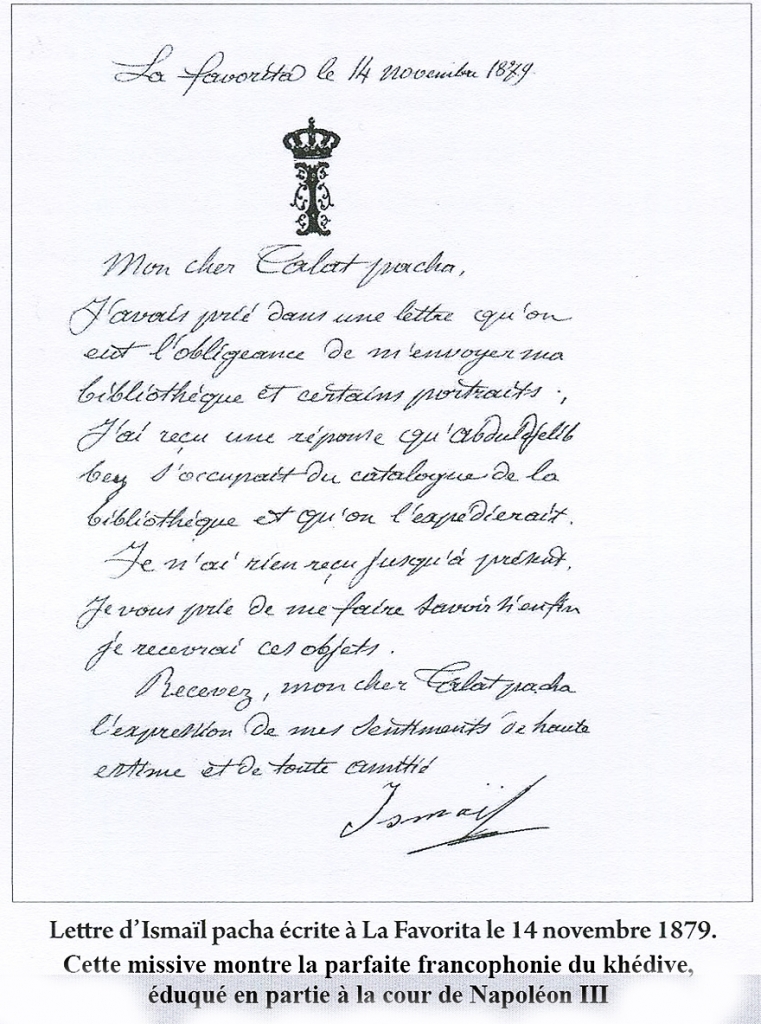 La favorita le 14 novembre 1879.
I
Mon cher Talat pacha,
J'avais prié dans une lettre qu'on
eut l'obligeance de m'envoyer ma
bibliothèque et certains portraits.,
J'ai reçu une réponse qu'Abduldjelib
bey s'occupait du catalogue de la
bibliothèque et qu'on l'expédierait.
Je n'ai rien reçu jusqu'à présent.
Je vous prie de me faire savoir si enfin
je recevrai ces objets.
Recevez, mon cher Talat pacha
l'expression de mes sentiments de haute
estime et de toute amitié
Ismaïl
Lettre d'Ismaïl pacha écrite à La Favorita le 14 novembre 1879.
Cette missive montre la parfaite francophonie du khédive,
éduqué en partie à la cour de Napoléon III